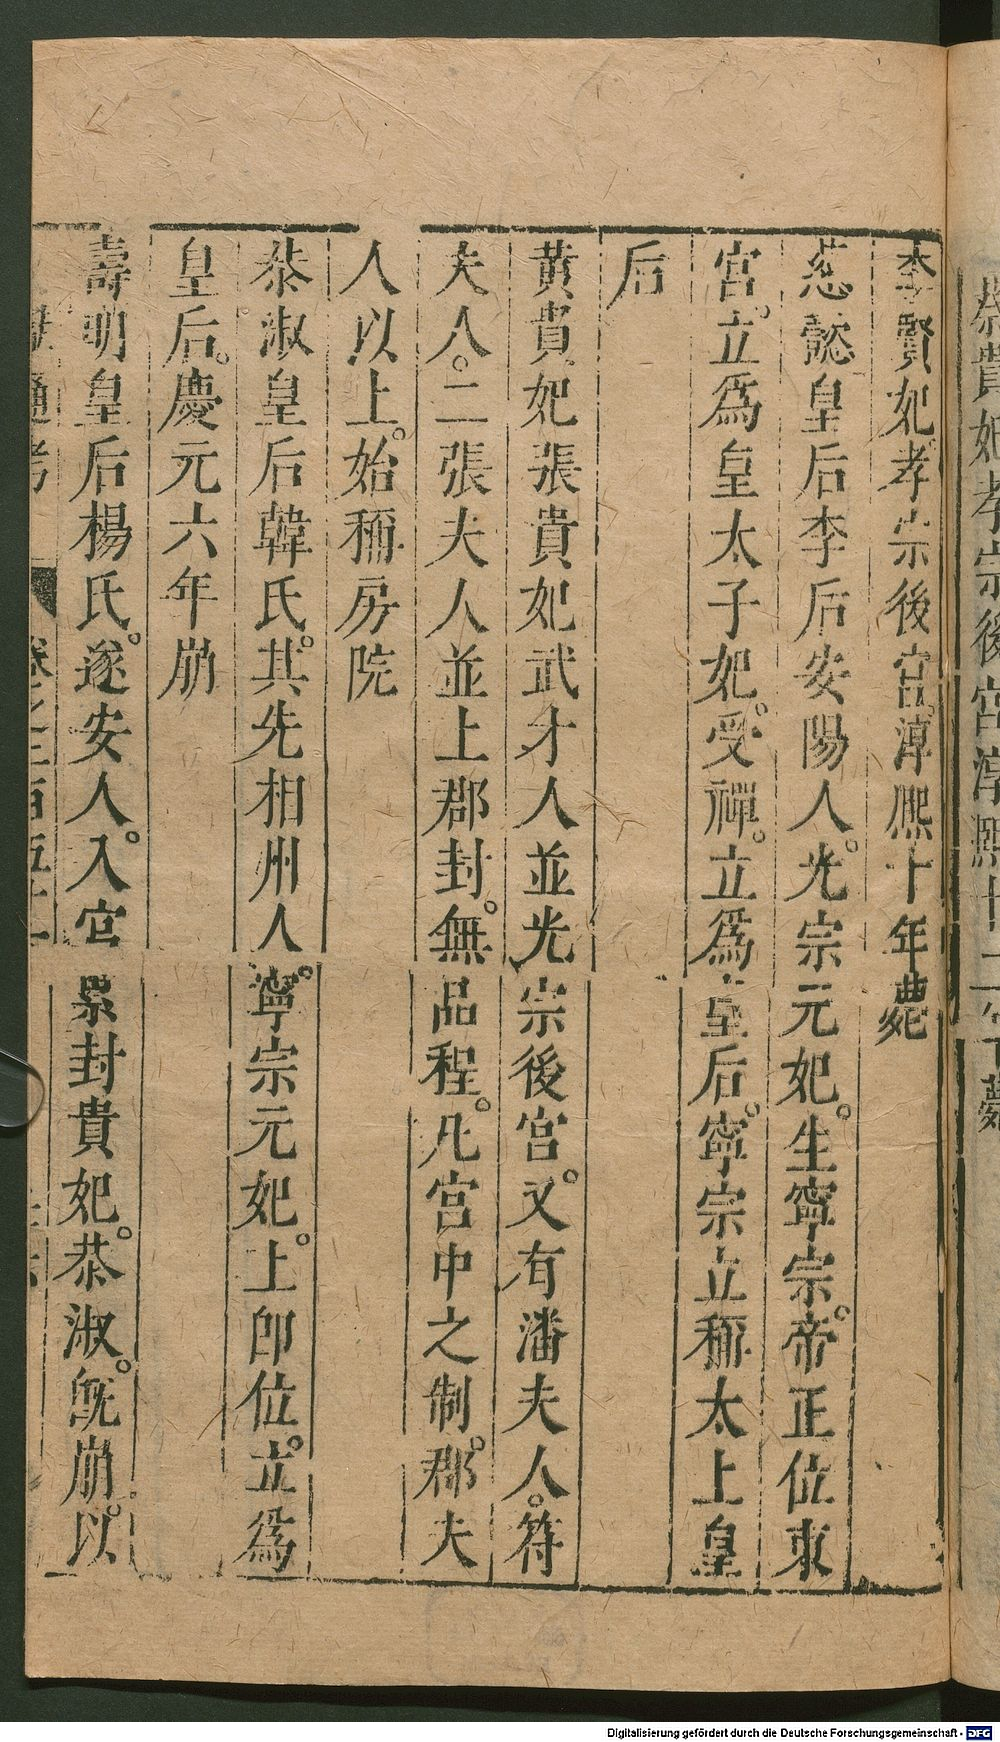 李賢妃。孝宗後宮。淳熙十年薨
慈懿皇后李后安陽人。光宗元妃。生寧宗。帝正位東
宮。立爲皇太子妃。受禪。立爲皇后。寧宗立稱太上皇
后
黄貴妃張貴妃武才人並光宗後宮。又有潘夫人。符
夫人。二張夫人並上郡封。無品程。凡宮中之制。郡夫
人以上。始稱房院
恭淑皇后韓氏。其先相州人。寧宗元妃。上卽位。立爲
皇后。慶元六年崩
壽明皇后楊氏。遂安人。入宮累封貴妃。恭淑。旣崩。以
通考
卷之二百五十二
Digitalisierung gefördert durch die Deutsche Forschungsgemeinschaft - DFG